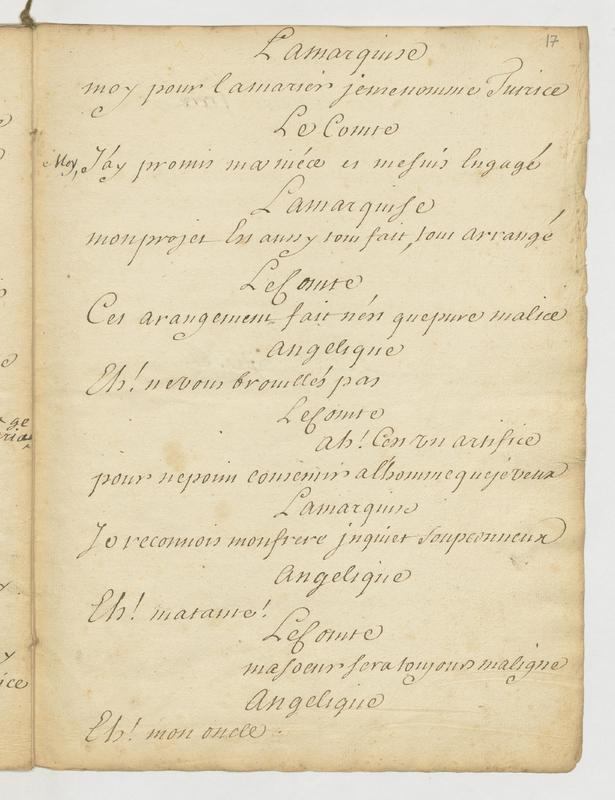 17
Lamarquise
moy pour lamarier jemenomme Tutrice
Le Comte
Moy, J'ay promis ma niéce et mesuis Engagé
Lamarquise
monprojet Est aussy tout fait, tout arrangé
LeComte
Cet arangement fait n'est quepure malice
angelique
Eh! nevous broüillés pas
LeComte
ah! C'est un artifice
pour nepoint consentir alhommequejeveux
Lamarquise
Je reconnois monfrere jnquiet soupconneux
angelique
Eh! matante!
LeComte
masoeur sera toujours maligne
Angelique
Eh! mon oncle.
ge
ice